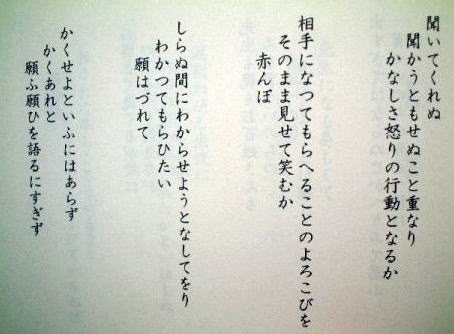 聞いてくれぬ
聞かうともせぬこと重なり
かなしさ怒りの行動となるか
相手になつてもらへることのよろこびを
そのまま見せて笑むか
赤んぼ
しらぬ間にわからせようとなしてをり
わかつてもらひたい
願はづれて
かくせよといふにはあらず
かくあれと
願ふ願ひを語るにすぎず